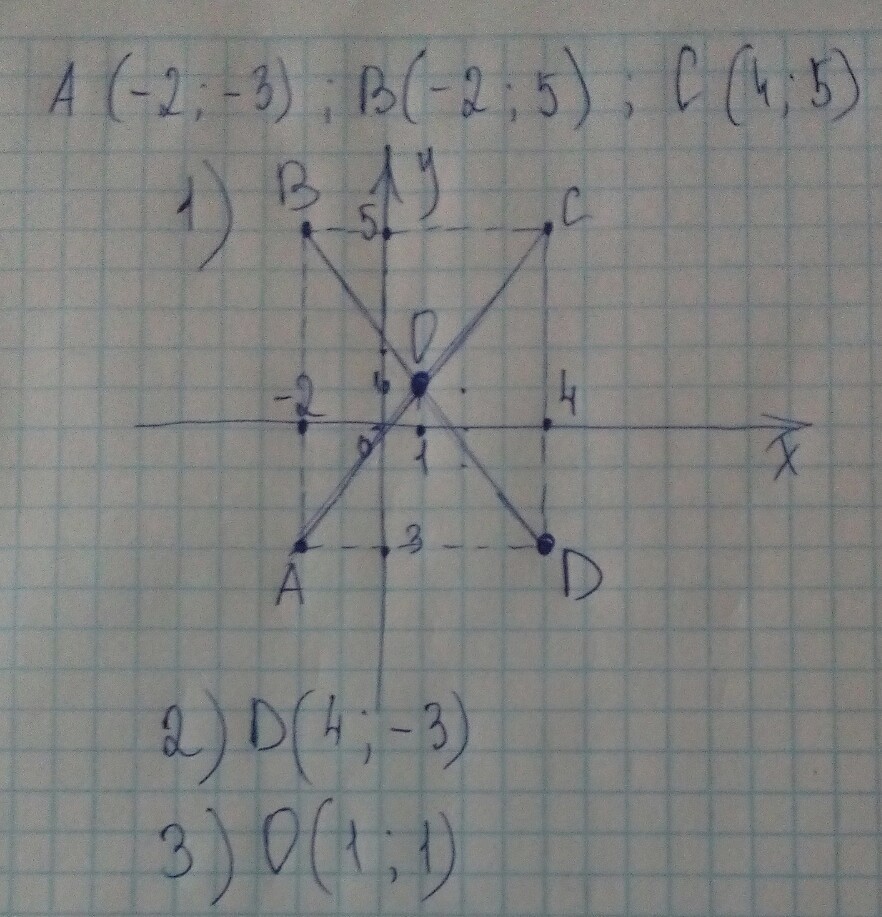 A (-2; -3) ; B(-2; 5) ; C (4; 5)
1) B 5 y C
O
-2 4
0 1 x
A 3 D
2) D(4; -3)
3) O(1; 1)